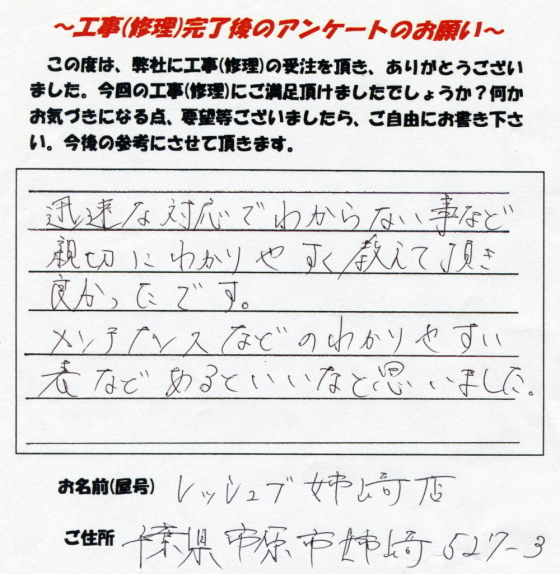 ～工事(修理)完了後のアンケートのお願い～
この度は、弊社に工事(修理)の受注を頂き、ありがとうござい
ました。今回の工事(修理)にご満足頂けましたでしょうか？何か
お気づきになる点、要望等ございましたら、ご自由にお書き下さ
い。今後の参考にさせて頂きます。
迅速な対応でわからない事など
親切にわかりやすく教えて頂き
良かったです。
メンテナンスなどのわかりやすい
表などあるといいなと思いました。
お名前(屋号) レッシュブ 姉崎店
ご住所 千葉県市原市姉崎527-3